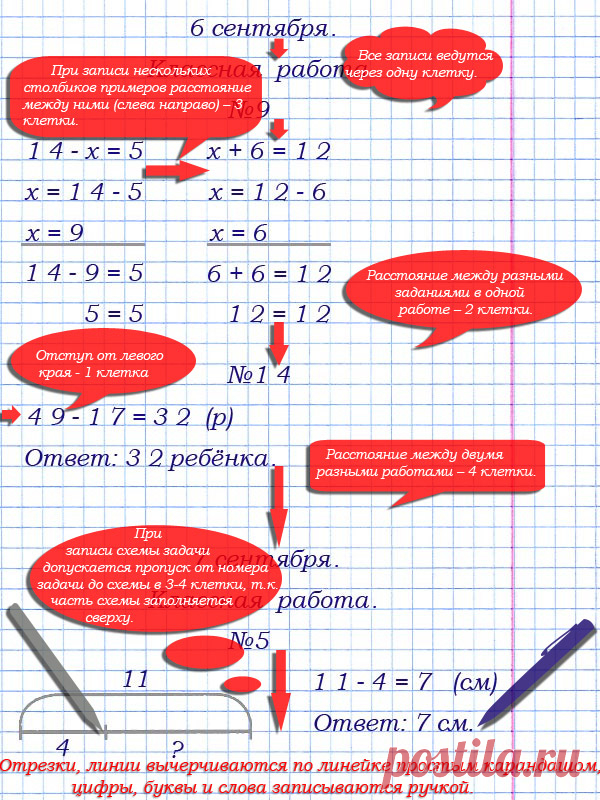 6 сентября.
Все записи ведутся
через одну клетку.
Классная работа
При записи нескольких
столбиков примеров расстояние
между ними (слева направо) – 3
клетки.
№9
1 4 - х = 5 х + 6 = 1 2
х = 1 4 - 5 х = 1 2 - 6
х = 9 х = 6
1 4 - 9 = 5 6 + 6 = 1 2
5 = 5 1 2 = 1 2
Расстояние между разными
заданиями в одной
работе – 2 клетки.
Отступ от левого
края - 1 клетка
№1 4
4 9 - 1 7 = 3 2 (р)
Ответ: 3 2 ребёнка.
Расстояние между двумя
разными работами – 4 клетки.
При
записи схемы задачи
допускается пропуск от номера
задачи до схемы в 3-4 клетки, т.к.
часть схемы заполняется
сверху.
7 сентября.
Классная работа.
№5
11
4 ?
1 1 - 4 = 7 (см)
Ответ: 7 см.
postila.ru
Отрезки, линии вычерчиваются по линейке простым карандашом,
цифры, буквы и слова записываются ручкой.